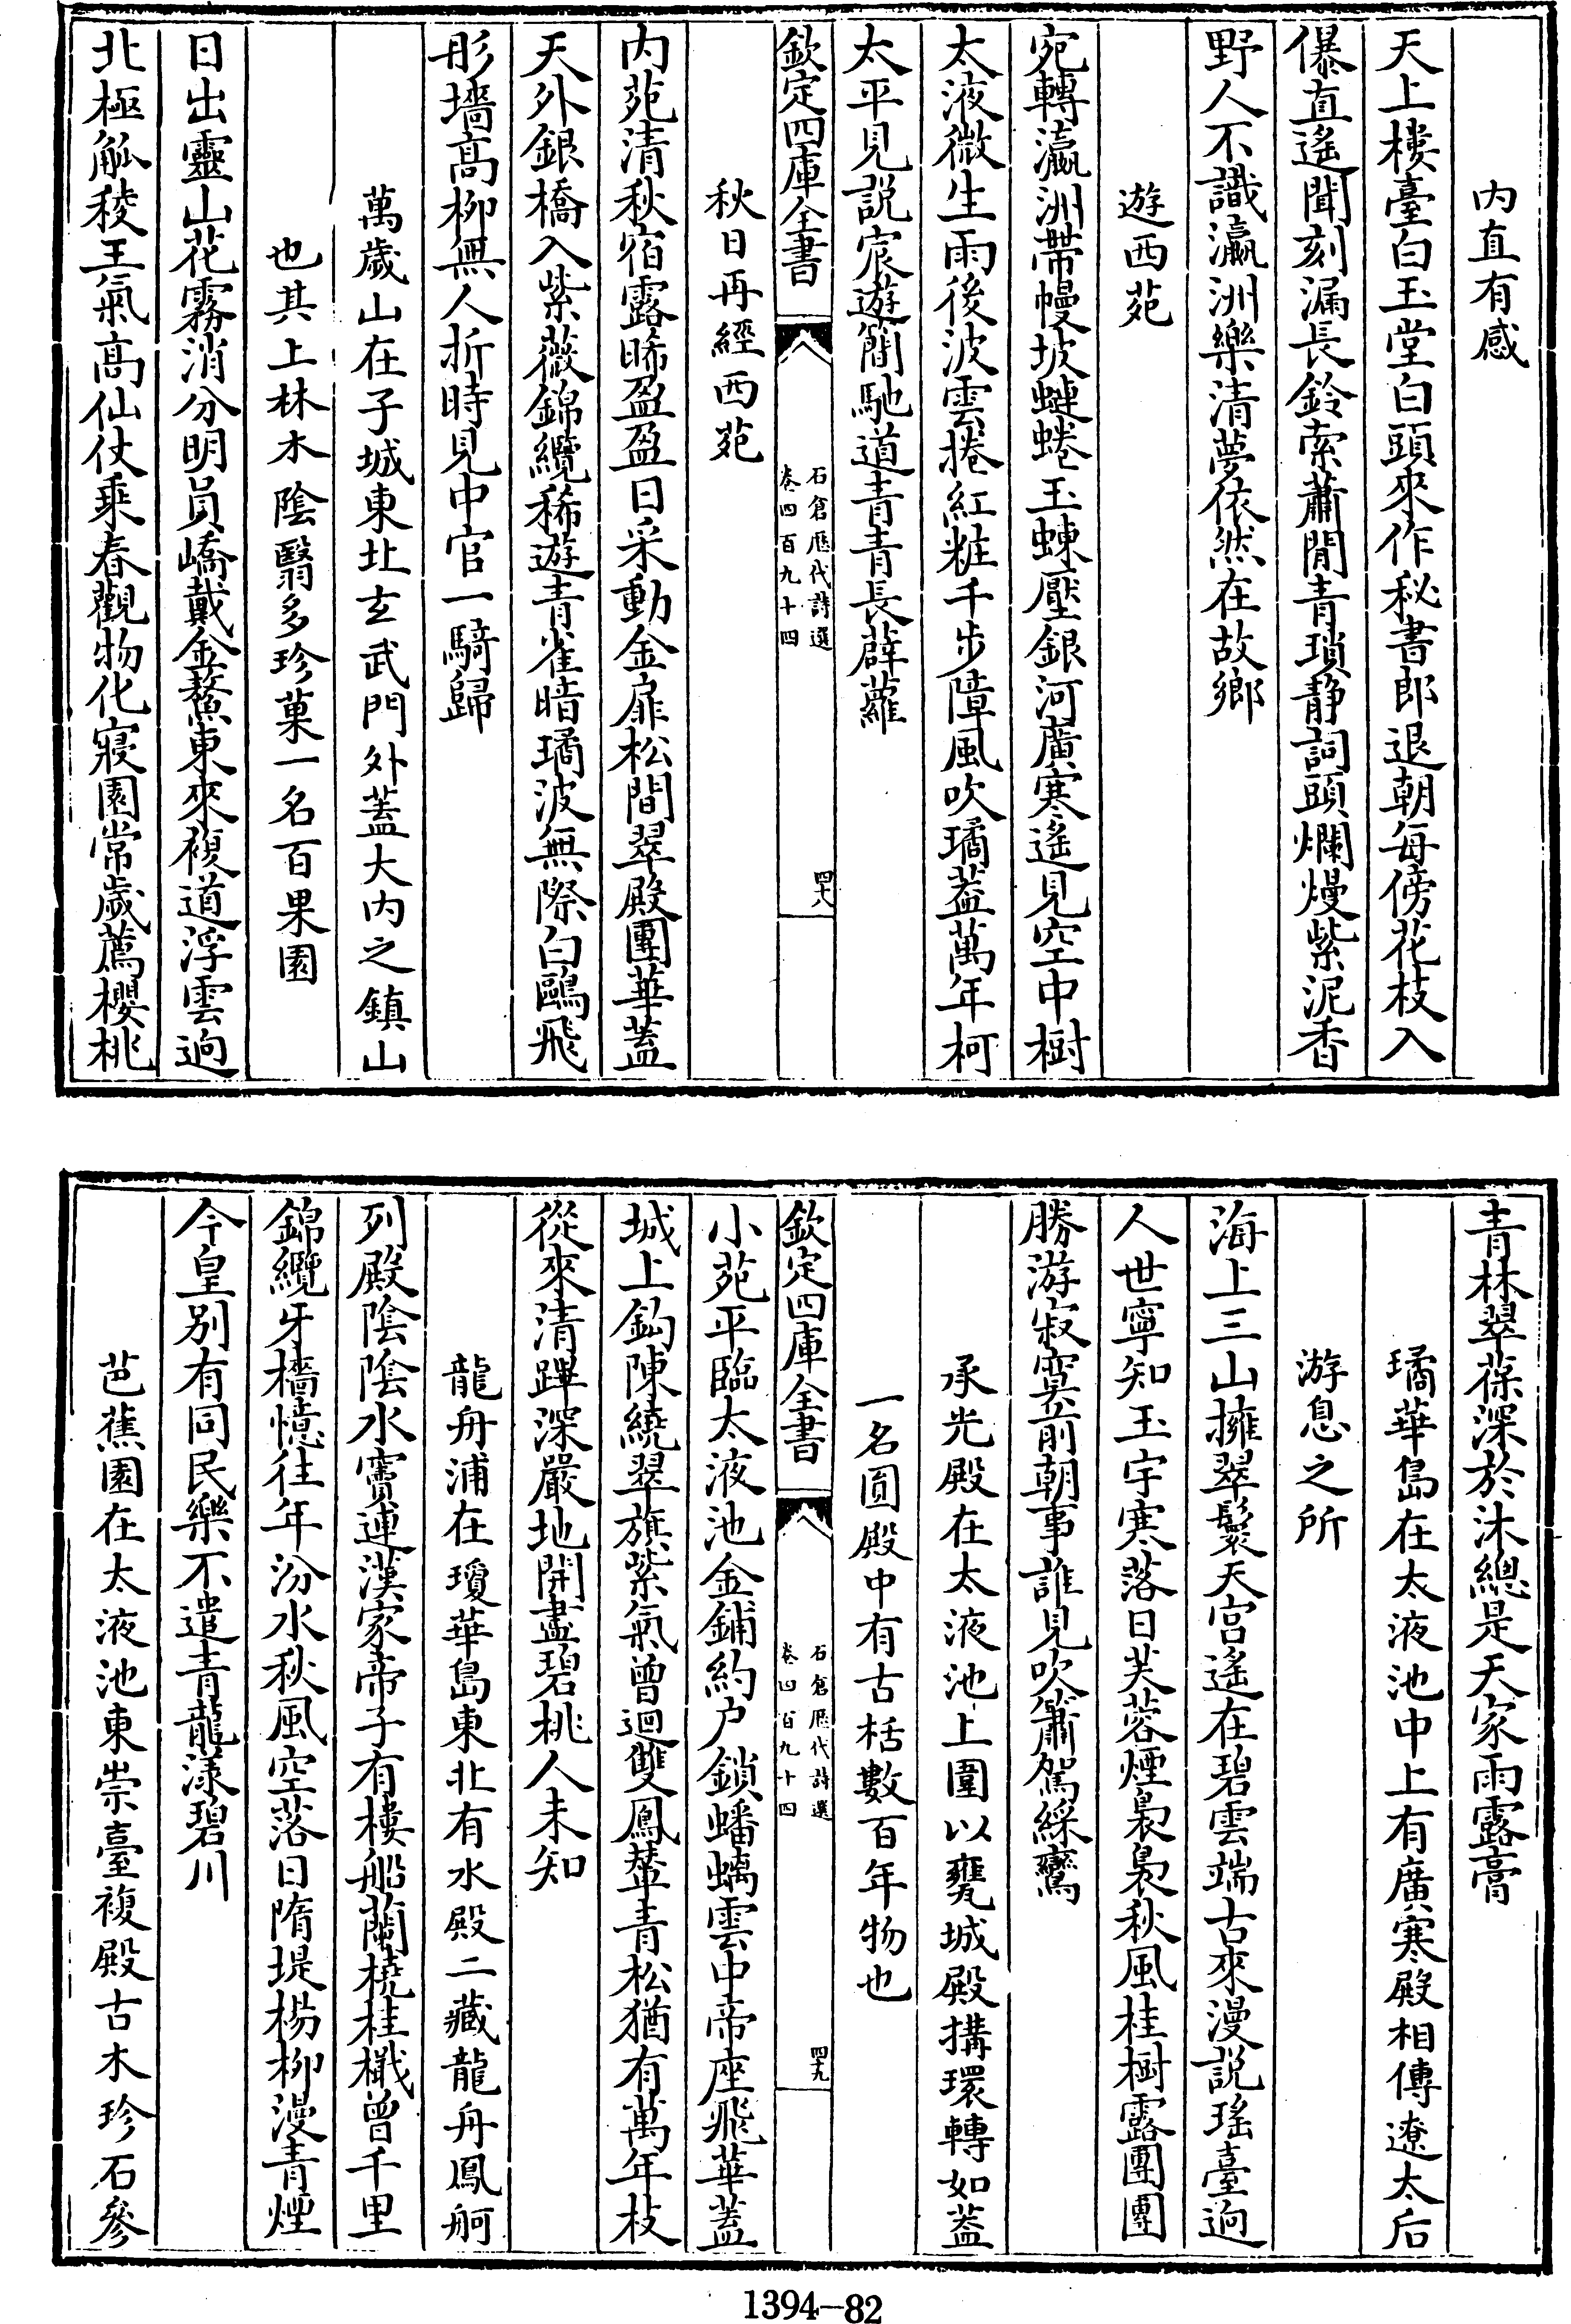 内直有感
天上樓臺白玉堂白頭來作秘書郎退朝每傍花枝入
儤直遙聞刻漏長鈴索蕭閒青瑣静詞頭爛熳紫泥香
野人不識瀛洲樂清夢依然在故鄉
遊西苑
宛轉瀛洲帶幔坡蜿蜷玉蝀壓銀河廣寒遙見空中樹
太液微生雨後波雲捲紅粧千步障風吹璚葢萬年柯
太平見説宸遊簡馳道青青長薜蘿
欽定四庫全書
石倉歷代詩選
卷四百九十四
四十八
秋日再經西苑
内苑清秋宿露晞盈盈日采動金扉松間翠殿團華蓋
天外銀橋入紫薇錦纜稀遊青雀暗璚波無際白鷗飛
彤墻高柳無人折時見中官一騎歸
萬歲山在子城東北玄武門外蓋大内之鎮山
也其上林木陰翳多珍菓一名百果園
日出靈山花霧消分明員嶠戴金鰲東來複道浮雲逈
北極觚稜王氣高仙仗乘春觀物化寢園常歲薦櫻桃
青林翠葆深於沐總是天家雨露膏
璚華島在太液池中上有廣寒殿相傳遼太后
游息之所
海上三山擁翠鬟天宫遙在碧雲端古來漫説瑤臺逈
人世寧知玉宇寒落日芙蓉煙裊裊秋風桂樹露團團
勝游寂寞前朝事誰見吹簫駕綵鸞
承光殿在太液池上圍以甕城殿搆環轉如葢
一名圓殿中有古栝數百年物也
欽定四庫全書
石倉歷代詩選
卷四百九十四
四十九
小苑平臨太液池金鋪約户鎖蟠螭雲中帝座飛華蓋
城上鈎陳繞翠旗紫氣曾迴雙鳳輦青松猶有萬年枝
從來清蹕深嚴地開盡碧桃人未知
龍舟浦在瓊華島東北有水殿二藏龍舟鳳舸
列殿陰陰水竇連漢家帝子有樓船蘭橈桂檝曾千里
錦纜牙檣憶往年汾水秋風空落日隋堤楊柳漫青煙
今皇别有同民樂不遣青龍漾碧川
芭蕉園在太液池東崇臺複殿古木珍石參
1394-82